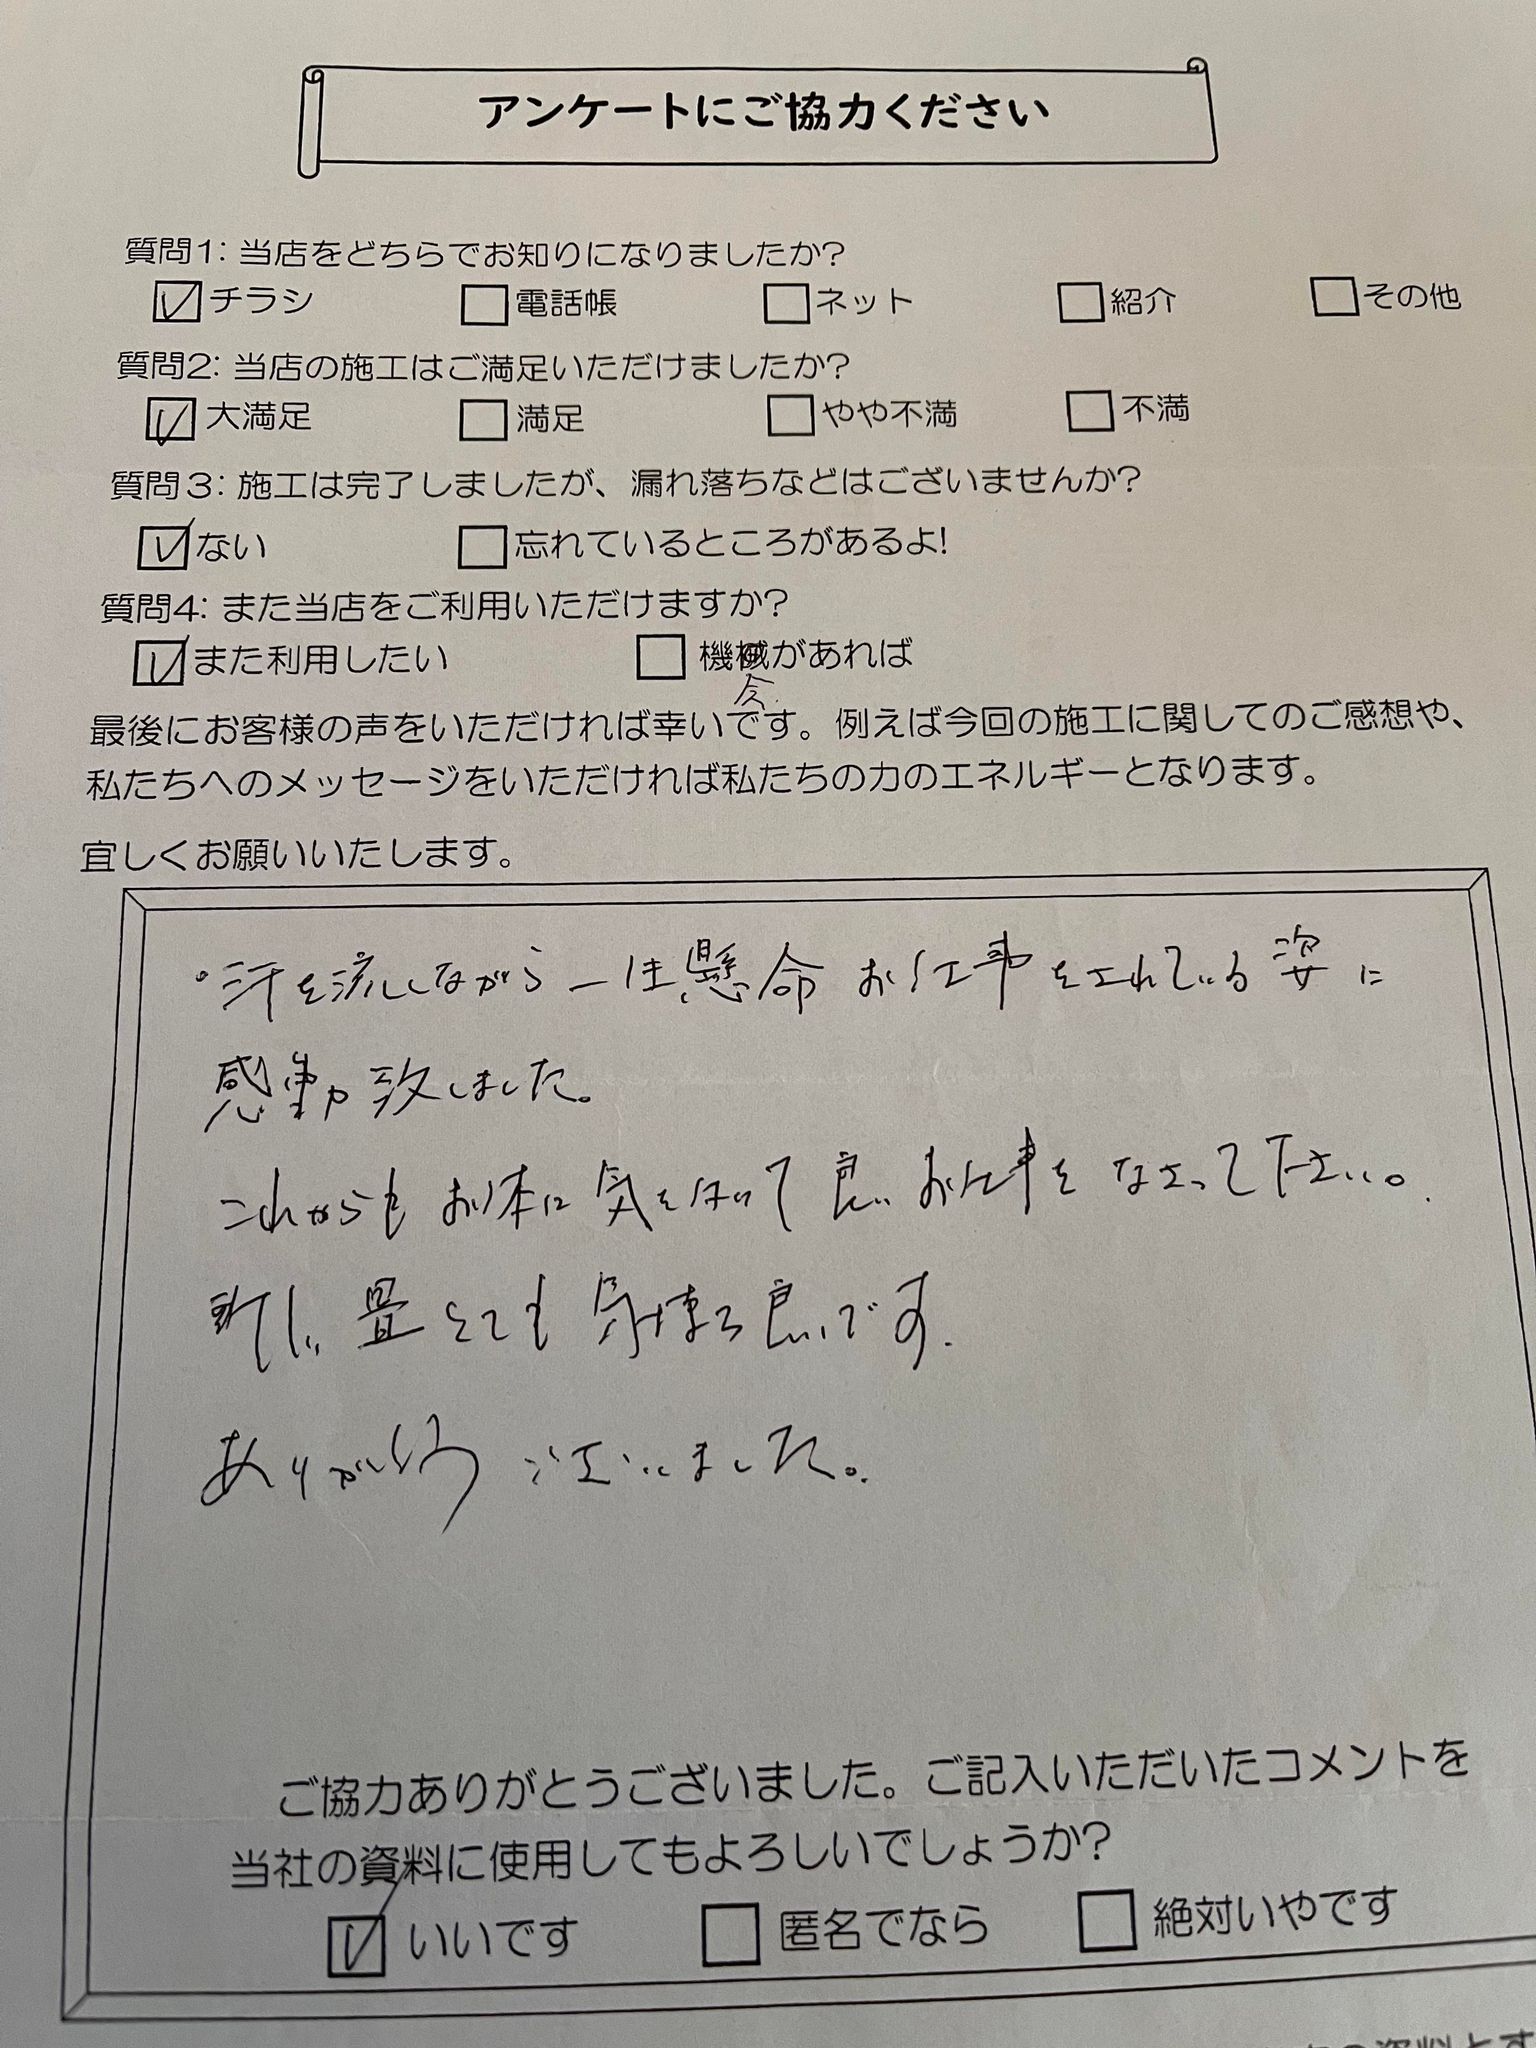 アンケートにご協力ください
質問1: 当店をどちらでお知りになりましたか?
チラシ 電話帳 ネット 紹介 その他
質問2: 当店の施工はご満足いただけましたか?
大満足 満足 やや不満 不満
質問3: 施工は完了しましたが、漏れ落ちなどはございませんか?
ない 忘れているところがあるよ!
質問4: また当店をご利用いただけますか?
また利用したい 機械があれば
会
最後にお客様の声をいただければ幸いです。例えば今回の施工に関してのご感想や、
私たちへのメッセージをいただければ私たちの力のエネルギーとなります。
宜しくお願いいたします。
・汗を流しながら一生懸命お仕事をされている姿に
感動致しました。
これからもお体に気を付けて良いお仕事をなさって下さい。
新しい畳とても気持ち良いです.
ありがとうございました。
ご協力ありがとうございました。ご記入いただいたコメントを
当社の資料に使用してもよろしいでしょうか?
いいです 匿名でなら 絶対いやです